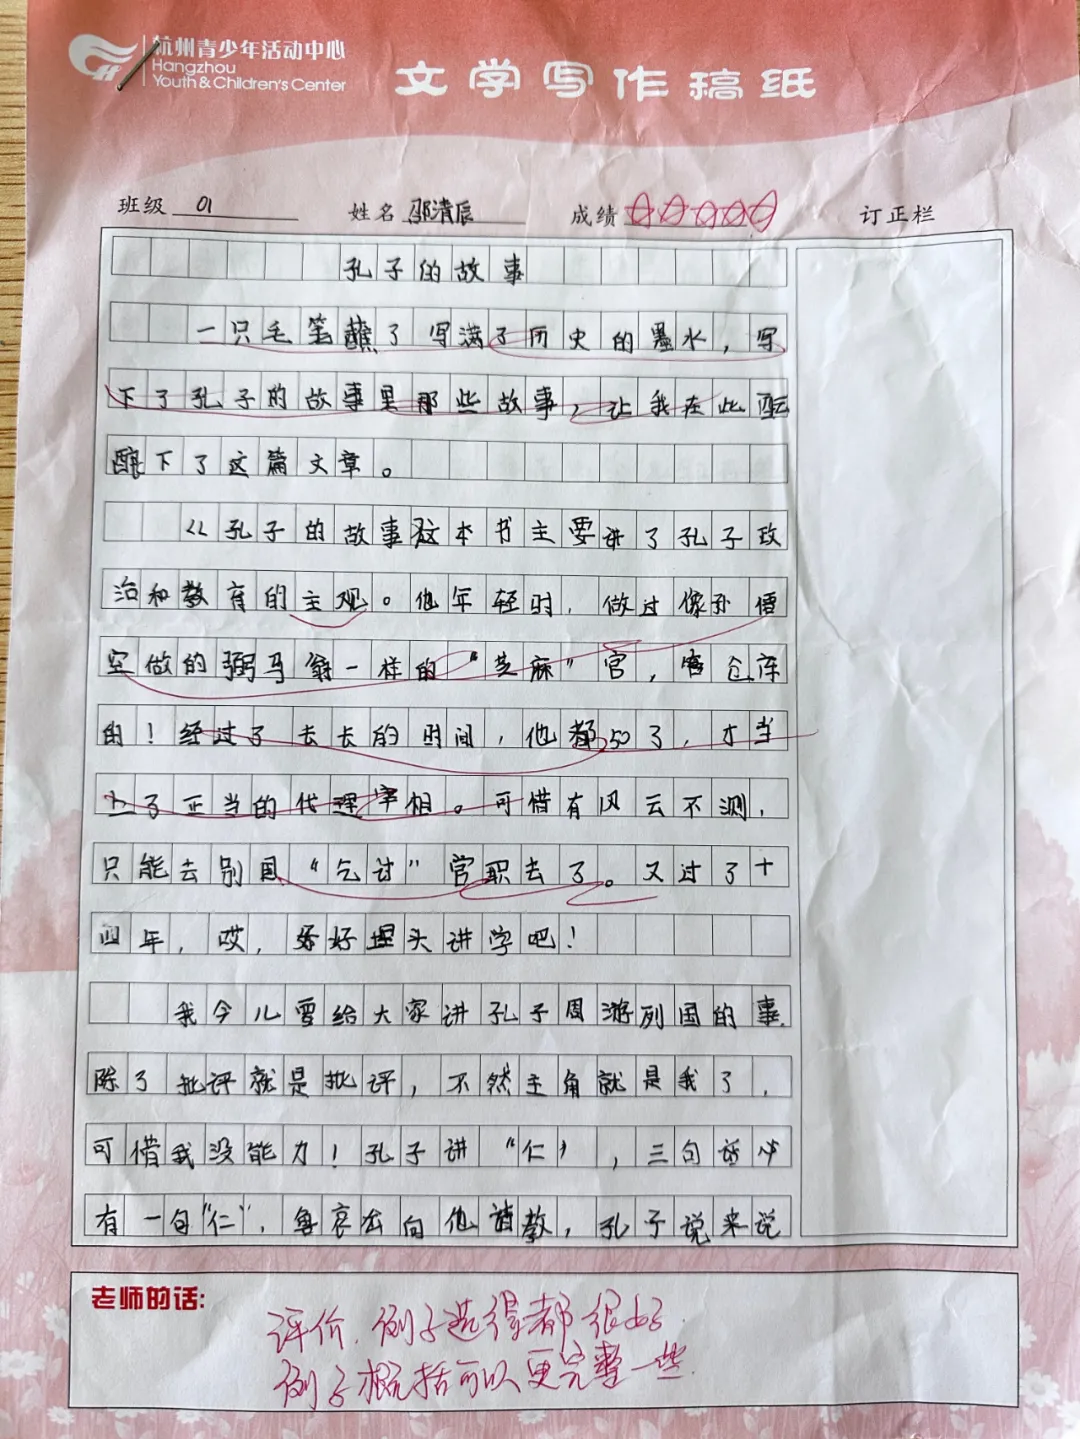 杭州青少年活动中心
Hangzhou
Youth & Children's Center
文学写作稿纸
班级 01 姓名 邵清辰 成绩 订正栏
孔子的故事
一只毛笔蘸了写满了历史的墨水，写
下了孔子的故事里那些故事，让我在此酝
酿下了这篇文章。
《孔子的故事这本书主要讲了孔子政
治和教育的主观。他年轻时，做过像孙悟
空做的弼马翁一样的“芝麻”官，管仓库
的！经过了长长的时间，他都50了，才当
上了正当的代理宰相。可惜有风云不测，
只能去别国“乞讨”官职去了。又过了十
四年，哎，好好埋头讲学吧！
我今儿要给大家讲孔子周游列国的事.
除了批评就是批评，不然主角就是我了，
可惜我没能力！孔子讲“仁”，三句话中
有一句“仁”，鲁哀公向他请教，孔子说来说
老师的话：
评价、例子选得都很好.
例子概括可以更完整一些.